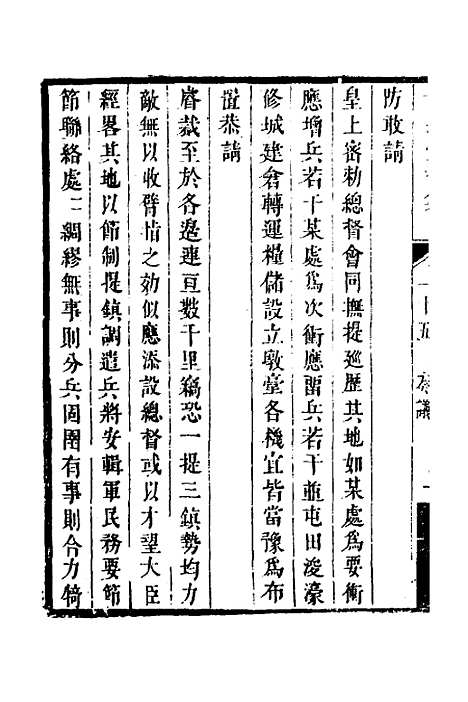 防敢請
皇上密勅總督會同撫提廵歷其地如某處爲要衝
應增兵若干某處爲次衝應畱兵若干並屯田浚濠
修城建倉轉運糧儲設立墩臺各機宜皆當豫爲布
置恭請
睿裁至於各邊連亘數千里竊恐一提三鎮勢均力
敵無以收臂指之効似應添設總督或以才望大臣
經畧其地以節制提鎮調遣兵將安輯軍民務要節
節聯絡處二綢繆無事則分兵固圉有事則合力犄
十五 奏議